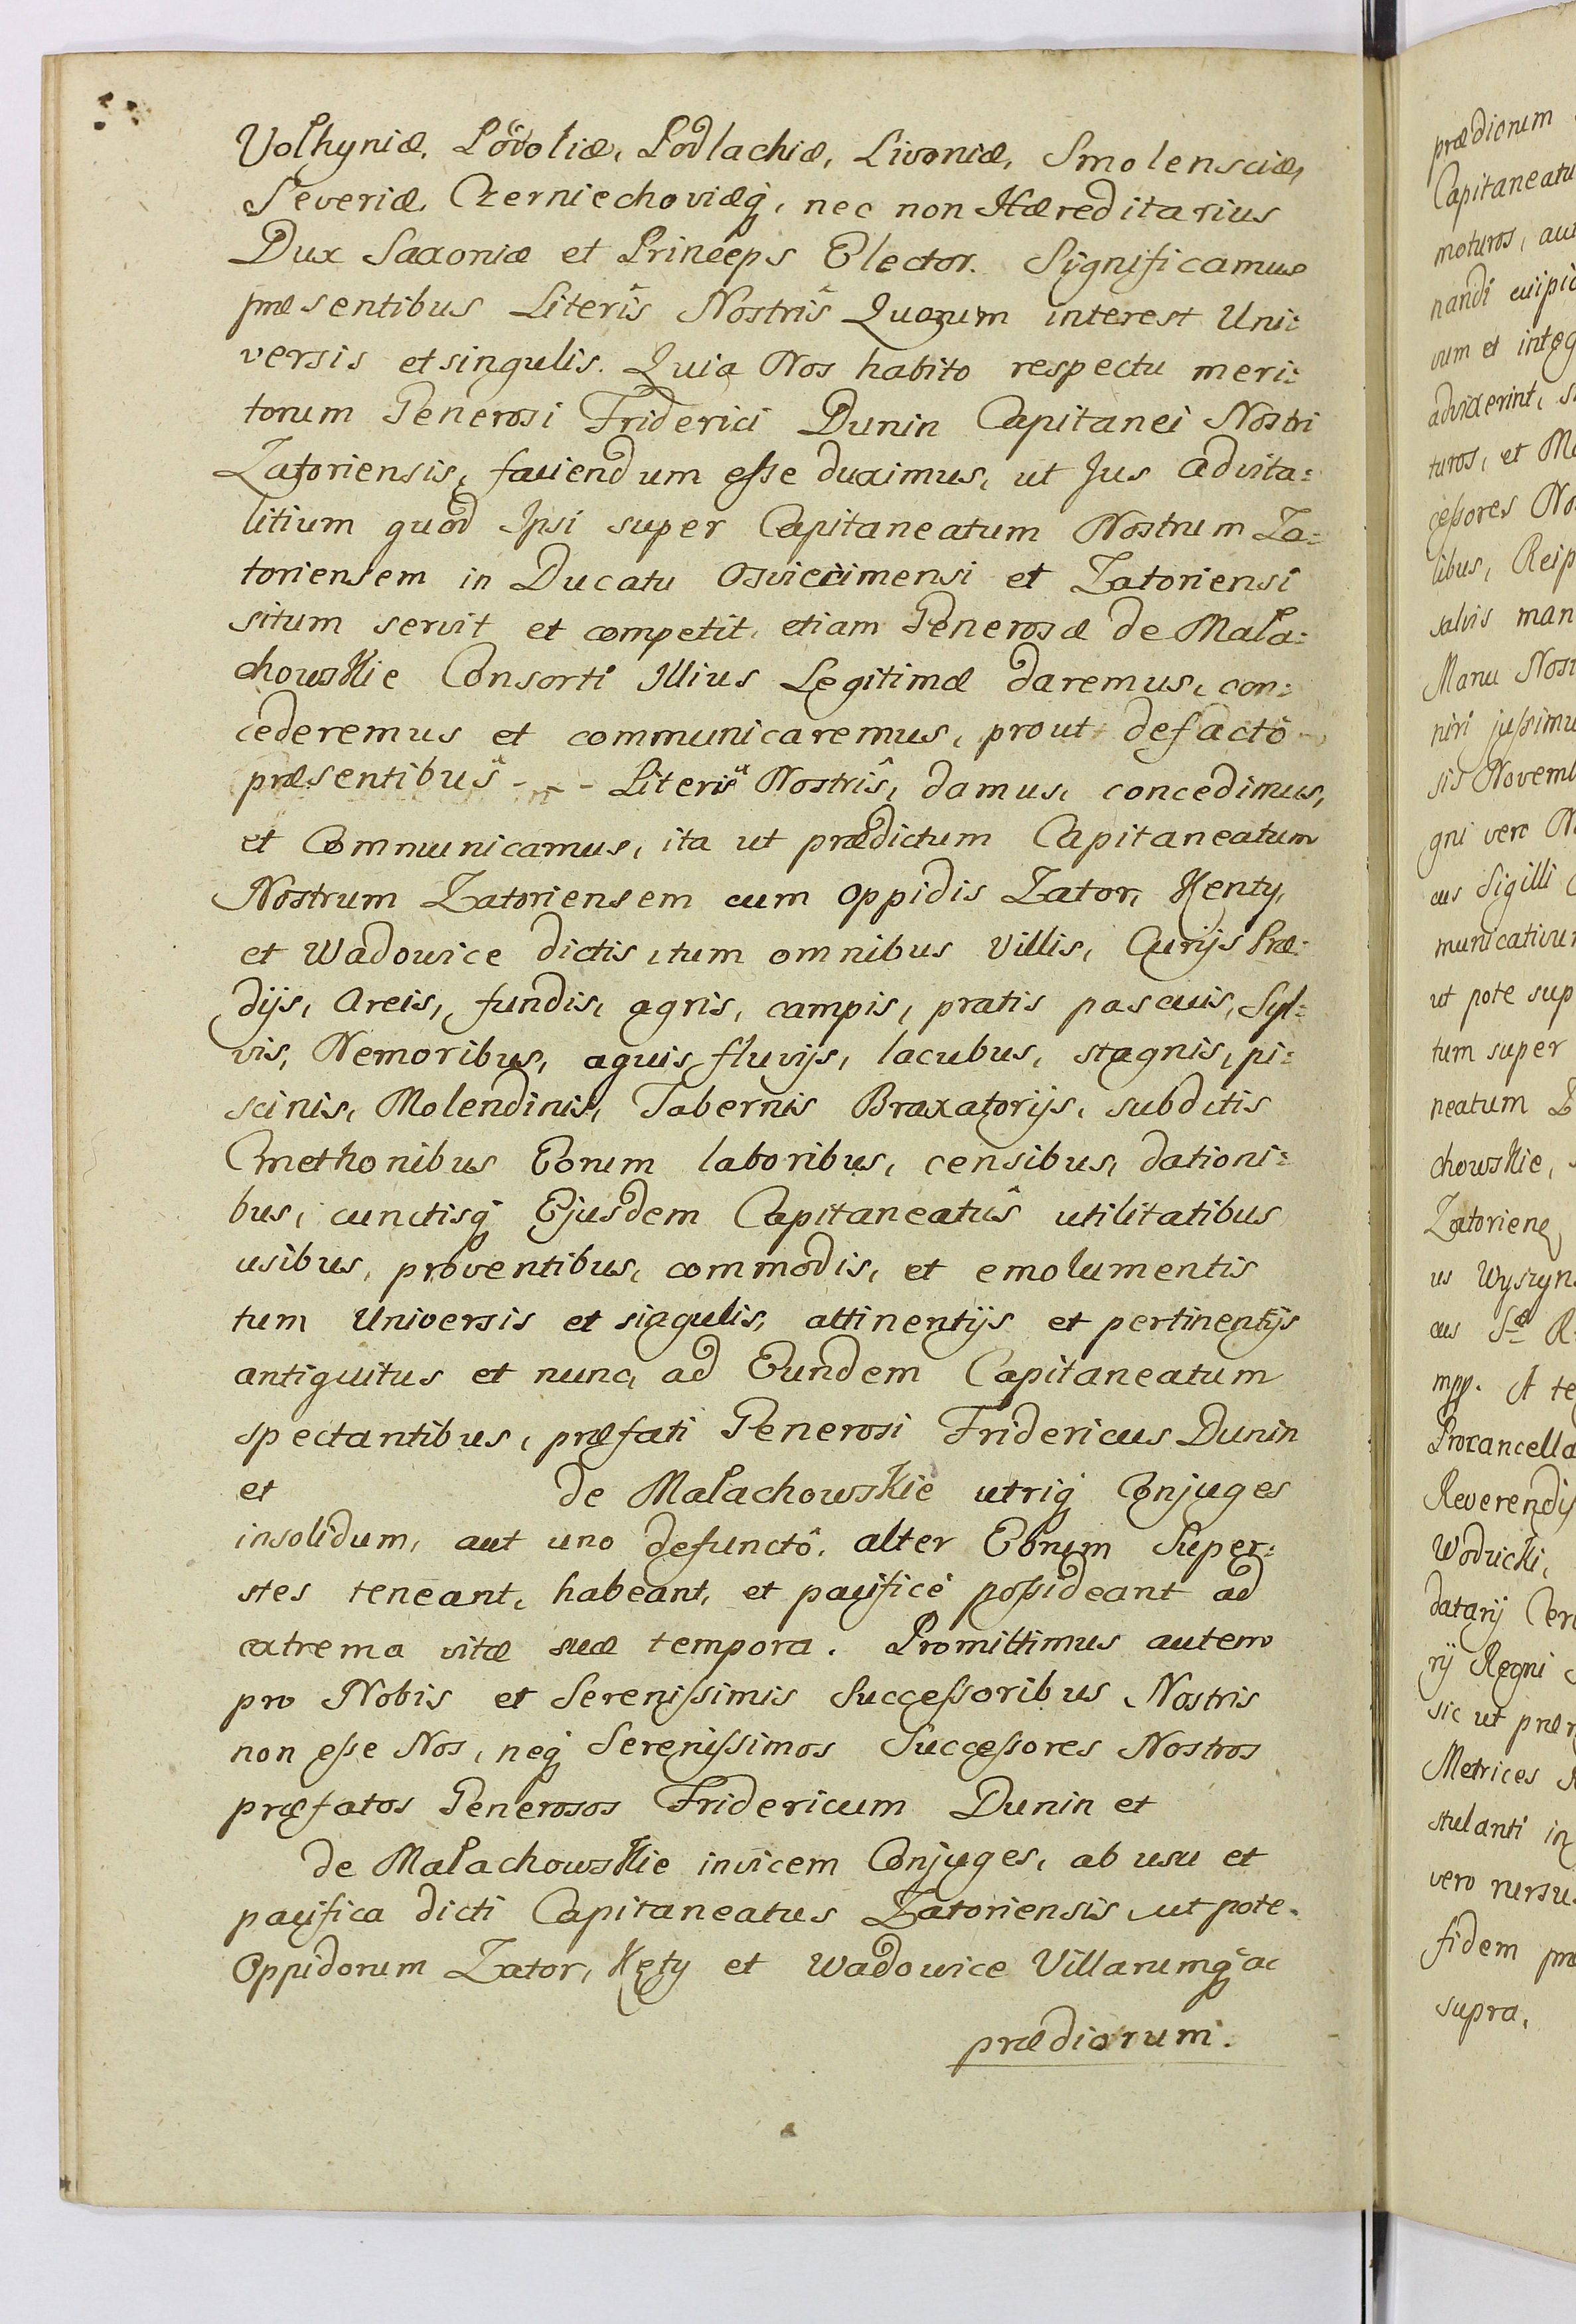 Volhyniæ, Podoliæ, Podlachiæ, Livoniæ, Smolensciæ,
Severiæ, Czerniechoviæq́, nec non Hæreditarius
Dux Saxoniæ et Princeps Elector. Significamus
præsentibus Literîs Nostrîs Quorum interest Uni:
versis et singulis. Quia Nos habito respectu meri:
torum Generosi Friderici Dunin Capitanei Nostri
Zatoriensis, faciendum eſse duximus, ut Jus advita:
litium quod Ipsi super Capitaneatum Nostrum Za:
toriensem in Ducatu Osviecimensi et Zatoriensi
situm servit et competit, etiam Generosæ de Mala:
chowskie Consorti Illius Legitimæ daremus, con:
cederemus et communicaremus, prout defactô
præsentibus - - Literis Nostrîs, damus, concedimus,
et Communicamus, ita ut prædictum Capitaneatum
Nostrum Zatoriensem cum oppidis Zator, Kenty,
et Wadowice dictis, tum omnibus villis, Curijs Præ:
dijs, Areis, fundis, agris, campis, pratis pascuis, Syl:
vis, Nemoribus, aquis fluvijs, lacubus, stagnis, pi:
scinis, Molendinis, Tabernis Braxatorijs, subditis
Cmethonibus Eorum laboribus, censibus, dationi:
bus, cunctisq́ Ejusdem Capitaneatûs utilitatibus
usibus, proventibus, commodis, et emolumentis
tum Universis et singulis, attinentijs et pertinentijs
antiquitus et nunc, ad Eundem Capitaneatum
spectantibus, præfati Generosi Fridericus Dunin
et de Malachowskie utriq́ Conjuges
insolidum, aut uno defunctô, alter Eorum Super:
stes teneant, habeant, et pacificè poſsideant ad
extrema vitæ suæ tempora. Promittimus autem
pro Nobis et Sereniſsimis Succeſsoribus Nostris
non eſse Nos, neq́ Sereniſsimos Succeſsores Nostros
præfatos Generosos Fridericum Dunin et
de Malachowskie invicem Conjuges, ab usu et
pacifica dicti Capitaneatus Zatoriensis, ut pote
Oppidorum Zator, Kęty et Wadowice Villarumq́ ac
prædiorum.
prædiorum
Capitaneatu
moturos, aut
nandi cuipi
vum et integ
advixerint, s
turos, et Ma
ceſsores No
libus, Reip
salvis man
Manu Nost
niri juſsimu
sis Novemb
gni vero N
cus Sigilli C
municativum
ut pote sup
tum super
neatum Z
chowskie,
Zatorien
us Wyszyn
cus Sæ R
mpp. A te
Procancella
Reverendiſ
Wodzicki,
datarij Cer
rij Regni
sic ut præ
Metrices R
stulanti in
vero rursu
fidem præ
supra.